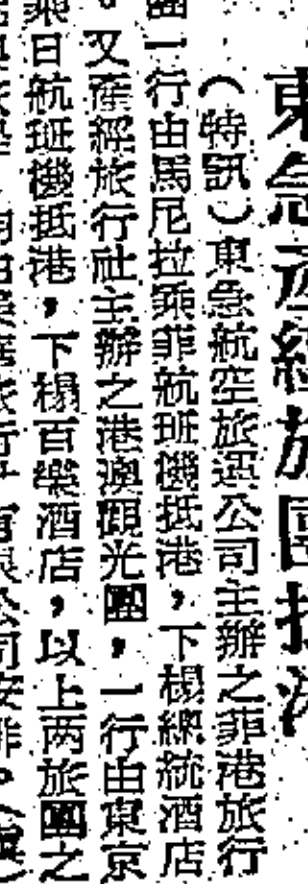 東急產經旅團抵港
（特訊）東急航空旅運公司主辦之菲港旅行
團一行由馬尼拉乘菲航班機抵港，下榻總統酒店
。又產經旅行社主辦之港澳觀光團，一行由東京
乘日航班機抵港，下榻百樂酒店，以上两旅團之
旅行
有限公司安排。